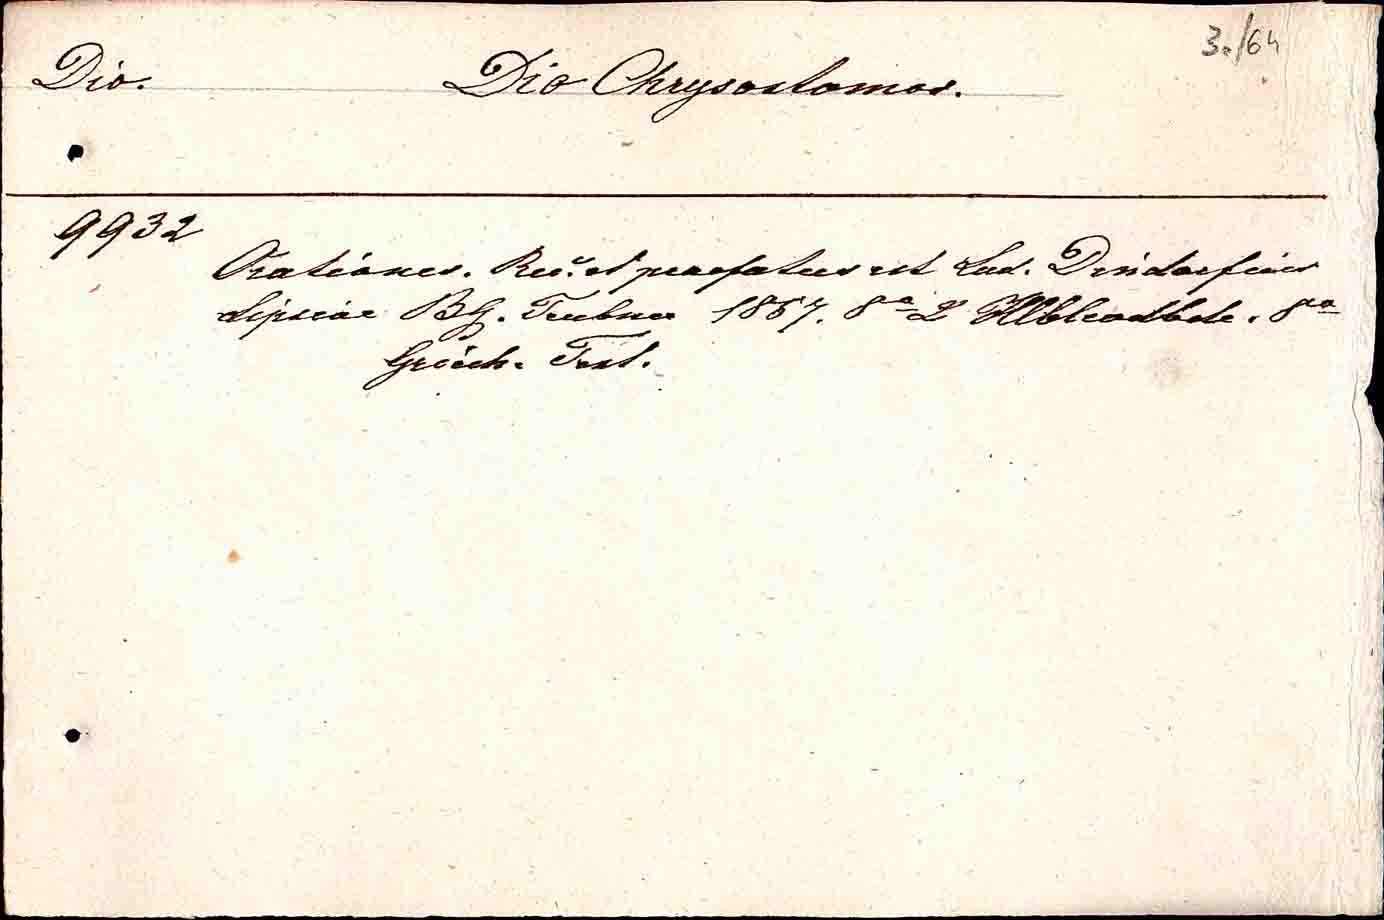 3./64
Dio. Dio Chrysostomos.
9932
Orationes. Rec. et praefatus est Lud. Dindorfius
Lipsiae BG. Teubner 1857. 8° 2 Hlblwdbde. 8°
Griech. Text.